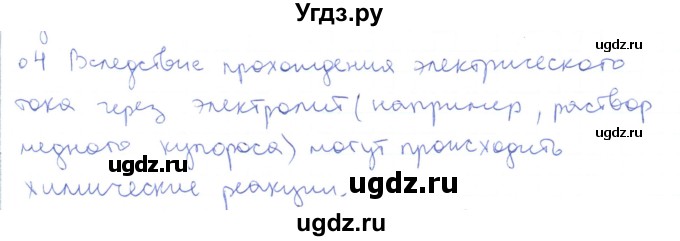 Угдз.ру
04 Вследствие прохождения электрического
тока через электролит (например, раствор
медного купороса) могут происходить
химические реакции.
угдз.ру
ugdz.ru